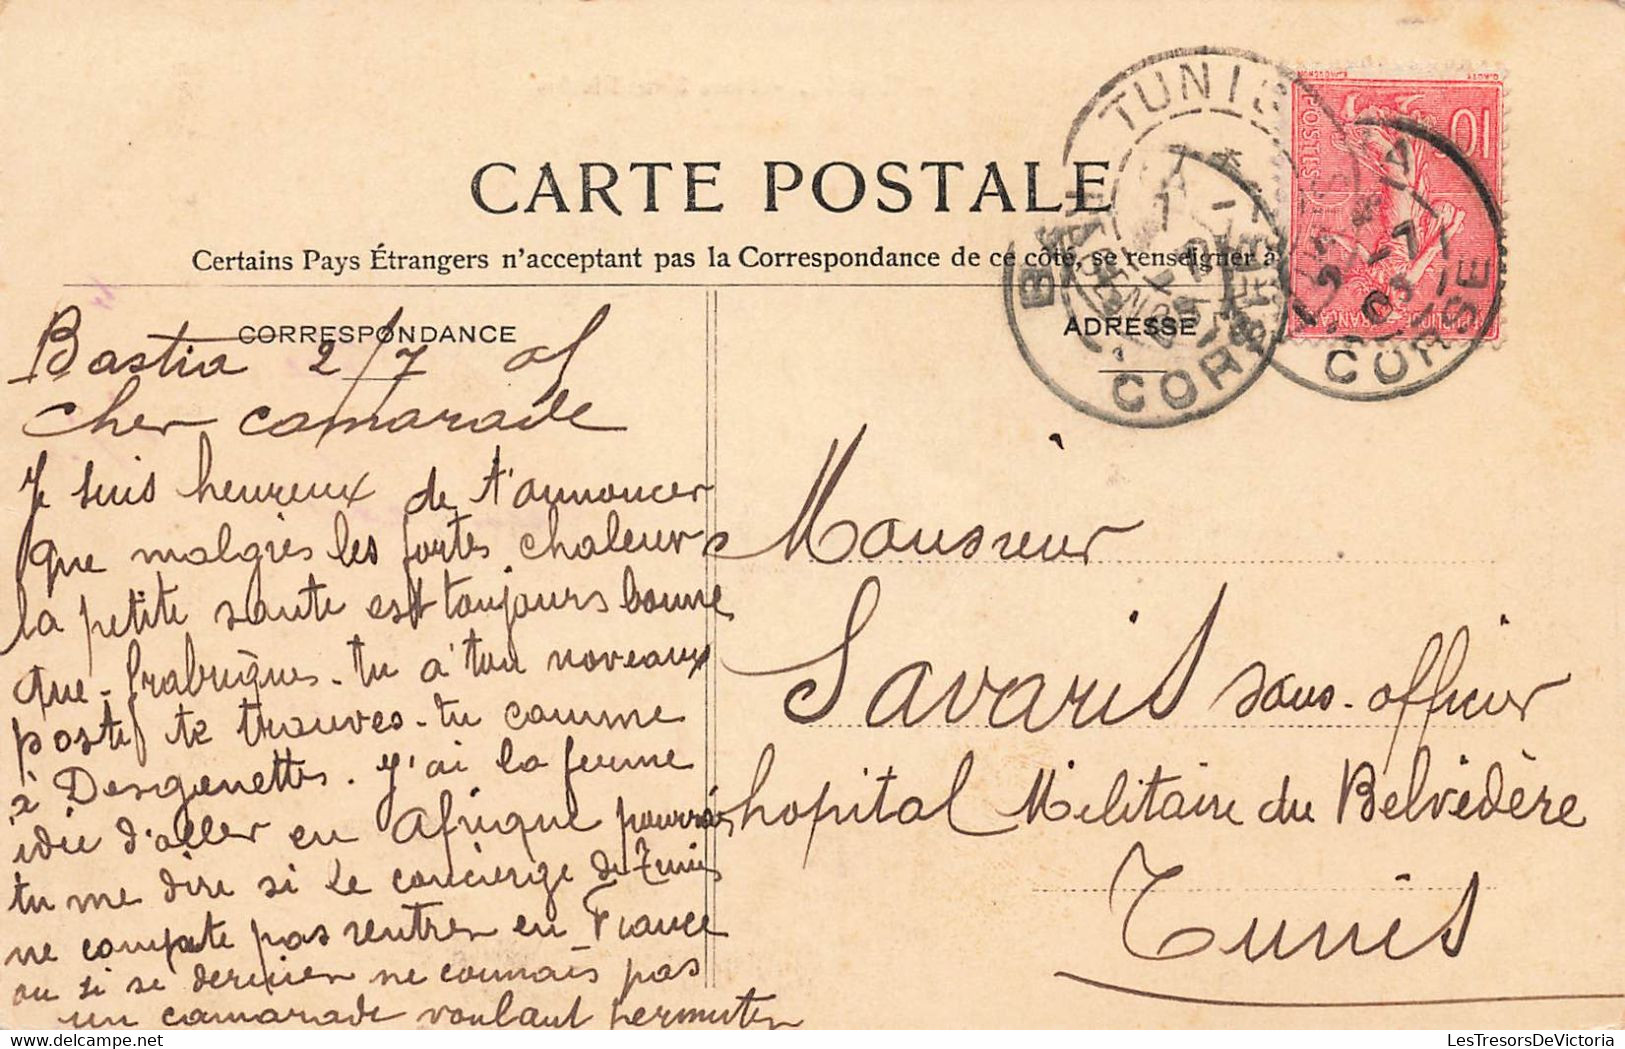 CARTE POSTALE
Certains Pays Étrangers n'acceptant pas la Correspondance de ce côté, se renseigner à
CORRESPONDANCE
Bastia 2/7 05
Cher camarade
Je suis heureux de t'annoncer
que malgrés les fortes chaleurs
la petite sante est toujours bonne
que tu à ton noveaux
postif te trouves-tu comme
à Desgenettes. J'ai la ferme
idée d'aller en Afrique pourrás
tu me dire si le concierge de Tunis
ne compte pas rentrer en France
ou si se dernier ne connais pas
un camarade voulant permuter
ADRESSE
Monsieur
Savaris sous-officier
hopital Militaire du Belvédère
Tunis
TUNIS
CORSE
CORSE
10
POSTES
LesTresorsDeVictoria